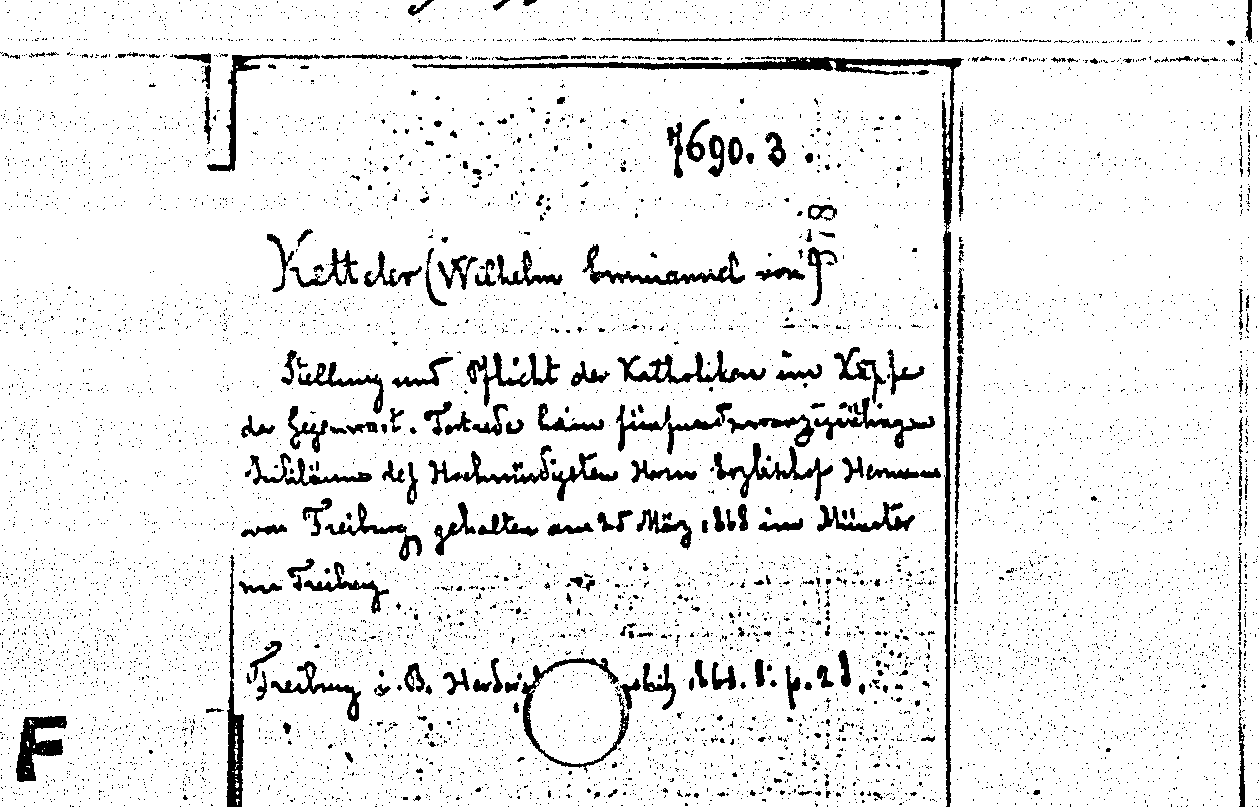 7690. 3.
578
Kettler (Wilhelm Emmanuel von)
Stellung und Pflicht der Katholiken im Kampfe
der Gegenwart. Festrede beim fünfundzwanzigjährigen
Jubiläum des Hochwürdigsten Herrn Erzbischof Hermann
von Freiburg, gehalten am 25 März 1868 im Münster
Freiburg
Freiburg i. B. 1868. 8. p. 28.
F